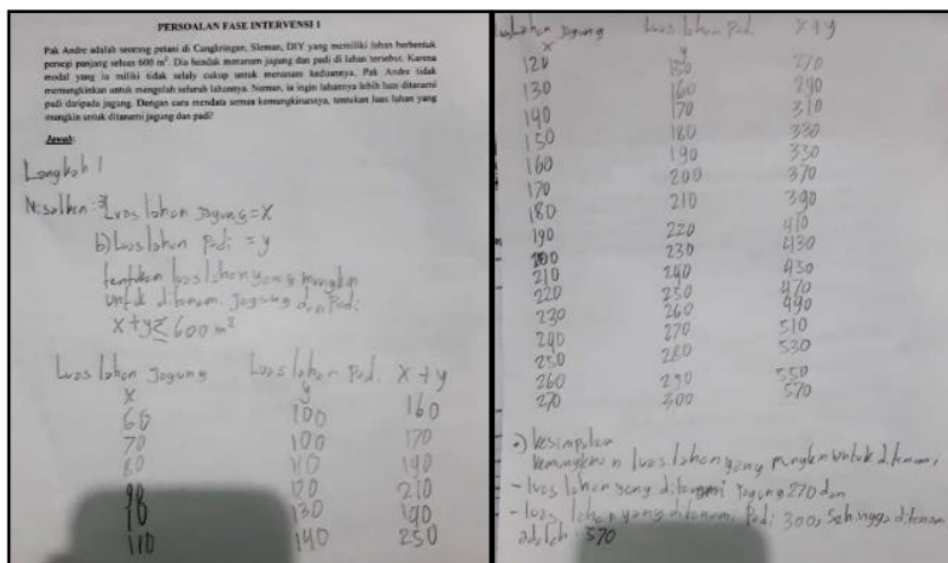 PERSOALAN FASE INTERVENSI 1
Pak Andre adalah seorang petani di Cangkringan, Sleman, DIY yang memiliki lahan berbentuk
persegi panjang seluas 600 m². Dia hendak menanam jagung dan padi di lahan tersebut. Karena
modal yang ia miliki tidak selaly cukup untuk menanam keduannya, Pak Andre tidak
memungkinkan untuk mengolah seluruh lahannya. Namun, ia ingin lahannya lebih luas ditanami
padi daripada jagung. Dengan cara mendata semua kemungkinannya, tentukan luas lahan yang
mungkin untuk ditanami jagung dan padi?
Jawab:
Langkah 1
Misalkan: a) Luas lahan Jagung = x
b) Luas lahan Padi = y
tentukan luas lahan yang mungkin
untuk ditanami jagung dan Padi
x + y ≤ 600 m²
Luas lahan Jagung Luas lahan Padi x + y
x y
60 100 160
70 100 170
80 110 190
90 120 210
130 190
110 140 250
lahan Jagung Luas lahan Padi x + y
x y
120 150 270
130 160 290
140 170 310
150 180 330
160 190 330
170 200 370
180 210 390
190 220 410
200 230 430
210 240 450
220 250 470
230 260 490
240 270 510
250 280 530
260 290 550
270 300 570
kesimpulan
luas lahan yang mungkin untuk ditanami
- luas lahan yang ditanami Jagung 270 dan
- luas lahan yang ditanami Padi 300, Sehingga ditanam
adalah 570